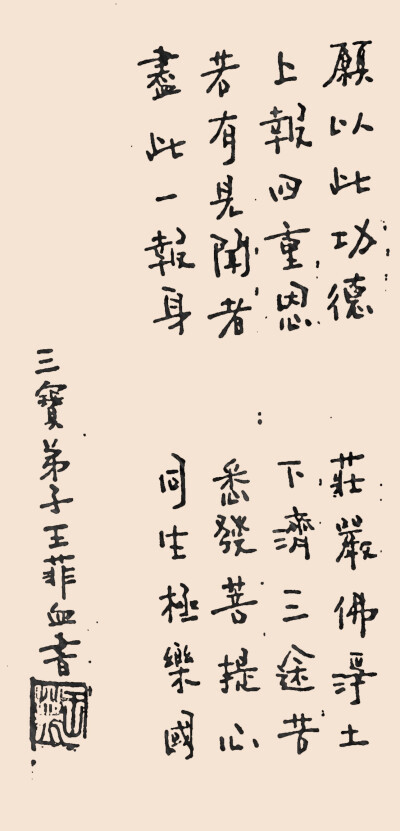 願以此功德 莊嚴佛淨土
上報四重恩 下濟三途苦
若有見聞者 悉發菩提心
盡此一報身 同生極樂國
三寶弟子王菲血書